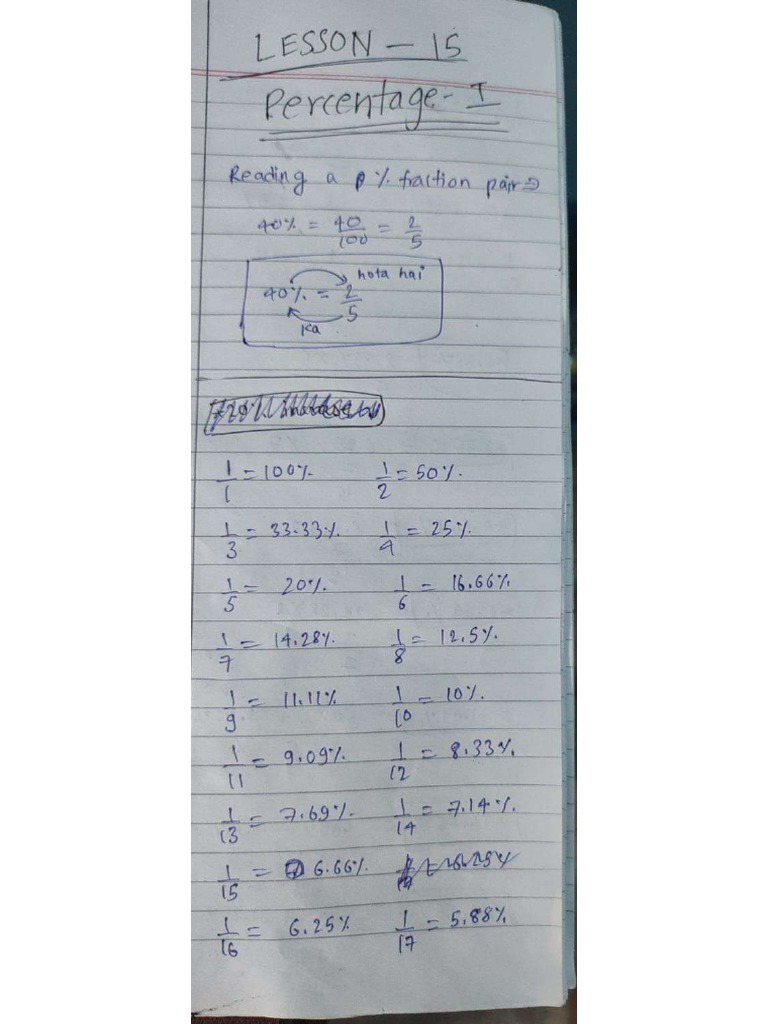 LESSON - 15
Percentage - I
Reading a % fraction pair ⇒
40% = 40/100 = 2/5
hota hai
40% = 2/5
Ka
1/1 = 100% 1/2 = 50%
1/3 = 33.33% 1/4 = 25%
1/5 = 20% 1/6 = 16.66%
1/7 = 14.28% 1/8 = 12.5%
1/9 = 11.11% 1/10 = 10%
1/11 = 9.09% 1/12 = 8.33%
1/13 = 7.69% 1/14 = 7.14%
1/15 = 6.66%
1/16 = 6.25% 1/17 = 5.88%